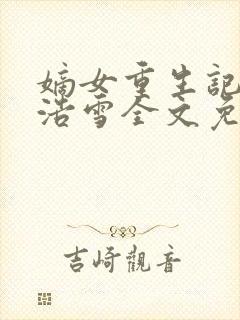 嫡女重生記
浩雪全文免
吉崎觀音